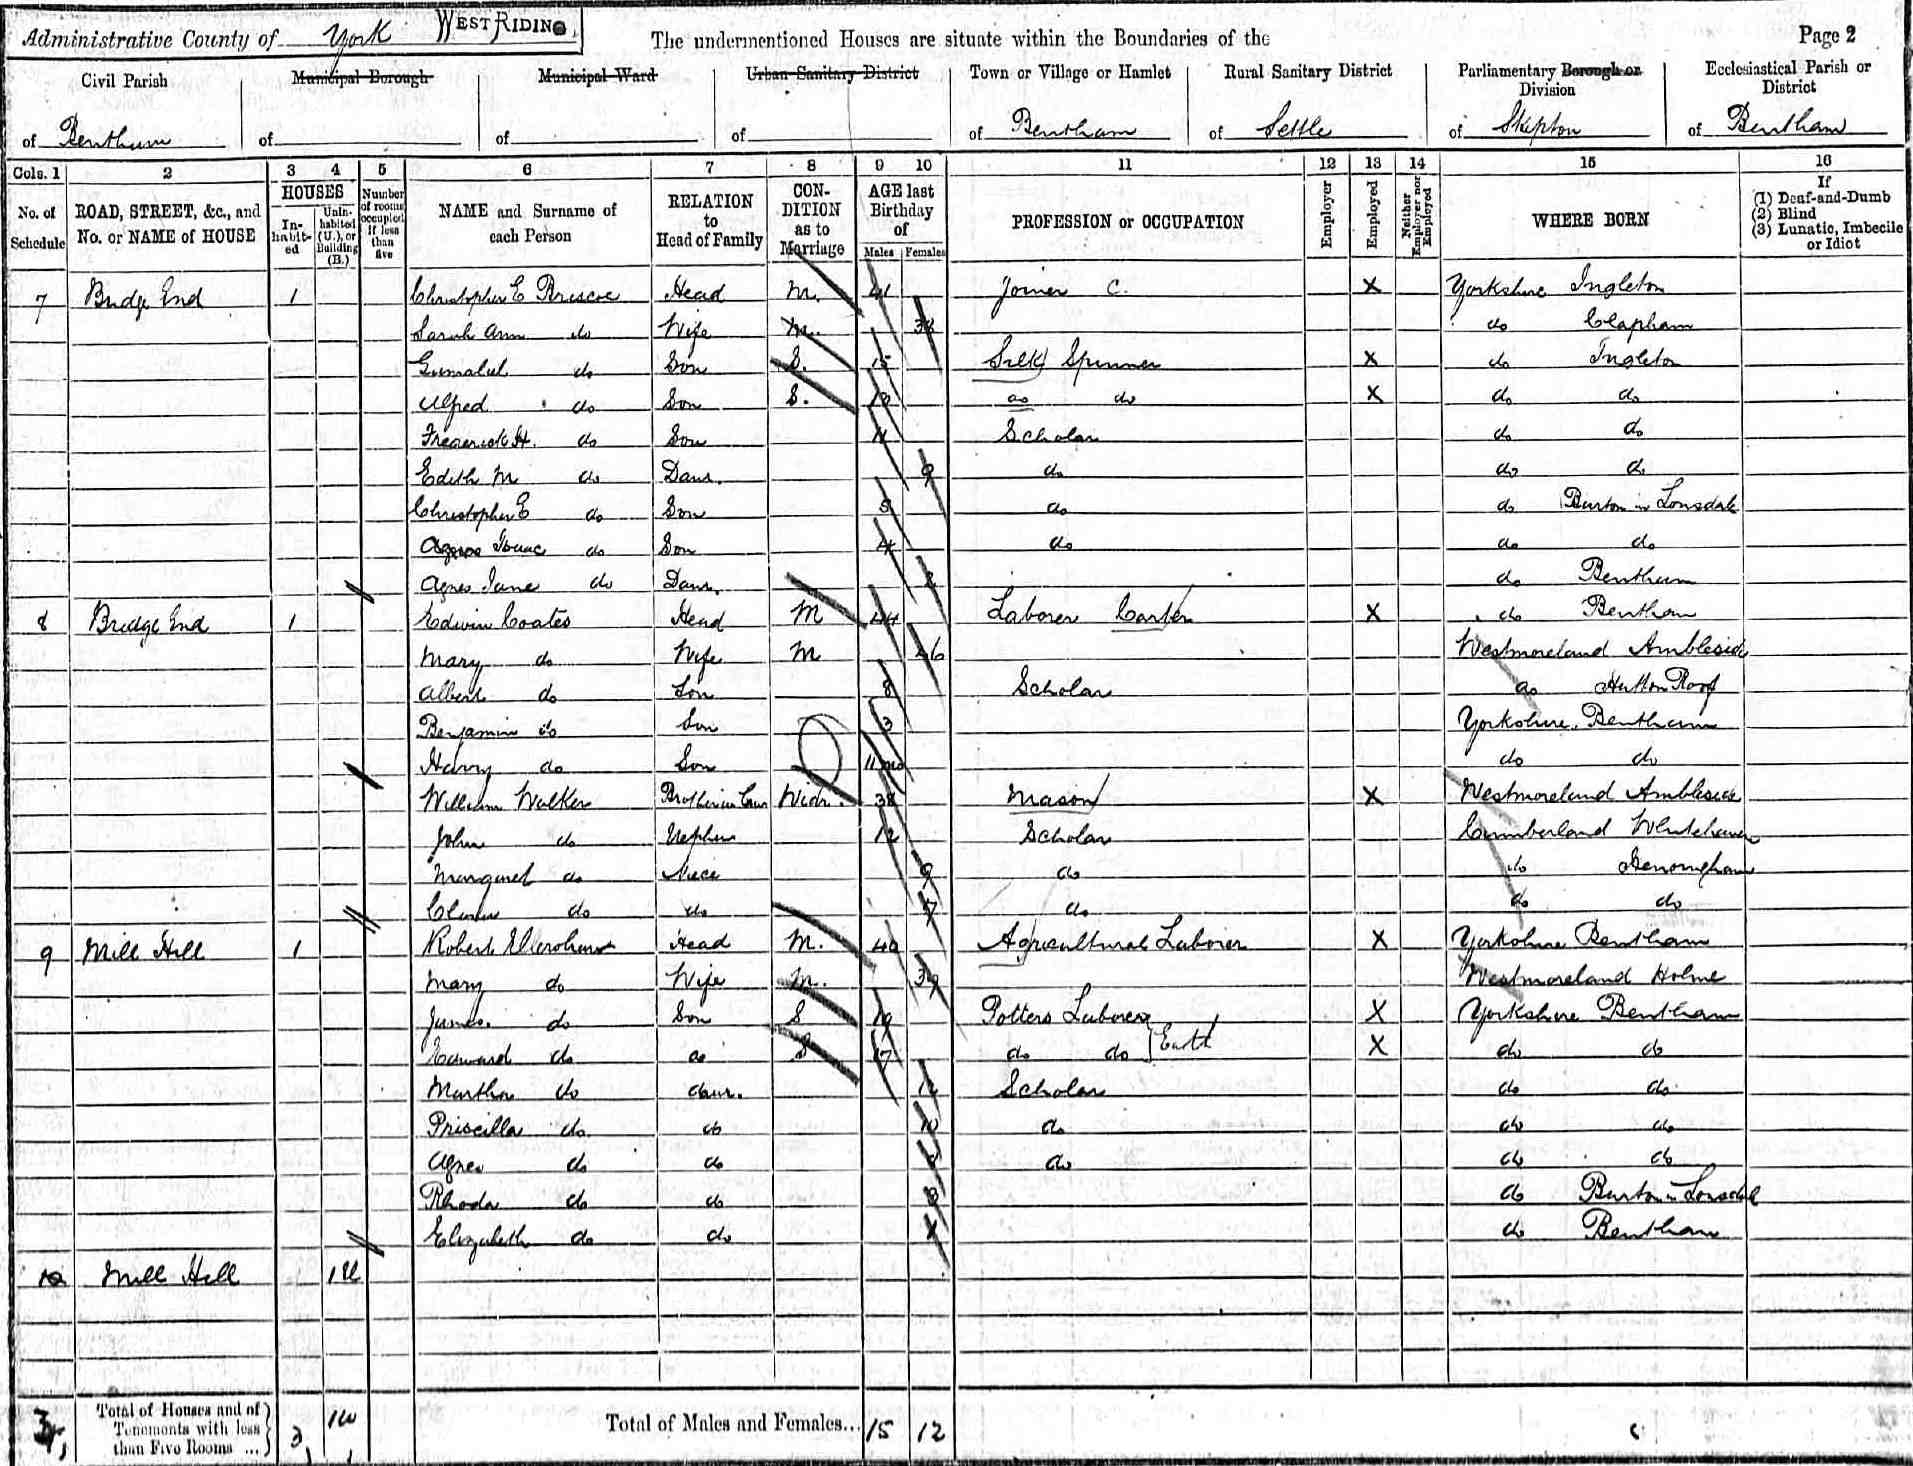 Administrative County of York WEST RIDING
The undermentioned Houses are situate within the Boundaries of the
Page 2
Civil Parish of Bentham
Municipal Borough of
Municipal Ward of
Urban Sanitary District of
Town or Village or Hamlet of Bentham
Rural Sanitary District of Settle
Parliamentary Borough or Division of Skipton
Ecclesiastical Parish or District of Bentham
Cols. 1 2 3 4 5 6 7 8 9 10 11 12 13 14 15 16
No. of Schedule
ROAD, STREET, &c., and No. or NAME of HOUSE
HOUSES
Inhabited
Uninhabited (U.), or Building (B.)
Number of rooms occupied if less than five
NAME and Surname of each Person
RELATION to Head of Family
CONDITION as to Marriage
AGE last Birthday of
Males Females
PROFESSION or OCCUPATION
Employer
Employed
Neither Employer nor Employed
WHERE BORN
If
(1) Deaf-and-Dumb
(2) Blind
(3) Lunatic, Imbecile or Idiot
7 Bridge End 1 Christopher E Briscoe Head M. 41 Joiner C. X Yorkshire Ingleton
Sarah Ann do Wife M. do Clapham
do Son S. 15 Silk Spinner X do Ingleton
Alfred do Son S. do do X do do
Frederick H. do Son 11 Scholar do do
Edith M do Daur. 9 do do do
Christopher E do Son do do Burton in Lonsdale
Agnes Isaac do Son 4 do do do
Agnes Jane do Daur. 2 do Bentham
8 Bridge End 1 Edwin Coates Head M 44 Laborer Carter X do Bentham
Mary do Wife M 46 Westmoreland Ambleside
Albert do Son 8 Scholar do Hutton Roof
Benjamin do Son 3 Yorkshire Bentham
Harry do Son 11 mo do do
William Walker Brother in Law Widr. 38 Mason X Westmoreland Ambleside
John do Nephew 12 Scholar Cumberland Whitehaven
Margaret do Niece 9 do do
do do 7 do do do
9 Mill Hill 1 Robert Head M. 40 Agricultural Laborer X Yorkshire Bentham
Mary do Wife M. 39 Westmoreland Holme
James do Son S 19 Potters Laborer X Yorkshire Bentham
Edward do do S 17 do do Earth X do do
Martha do daur. 12 Scholar do do
Priscilla do do 10 do do do
Agnes do do do do do
Rhoda do do 3 do Burton in Lonsdale
Elizabeth do do do Bentham
10 Mill Hill 1U
Total of Houses and of Tenements with less than Five Rooms ... 3
Total of Males and Females... 15 12